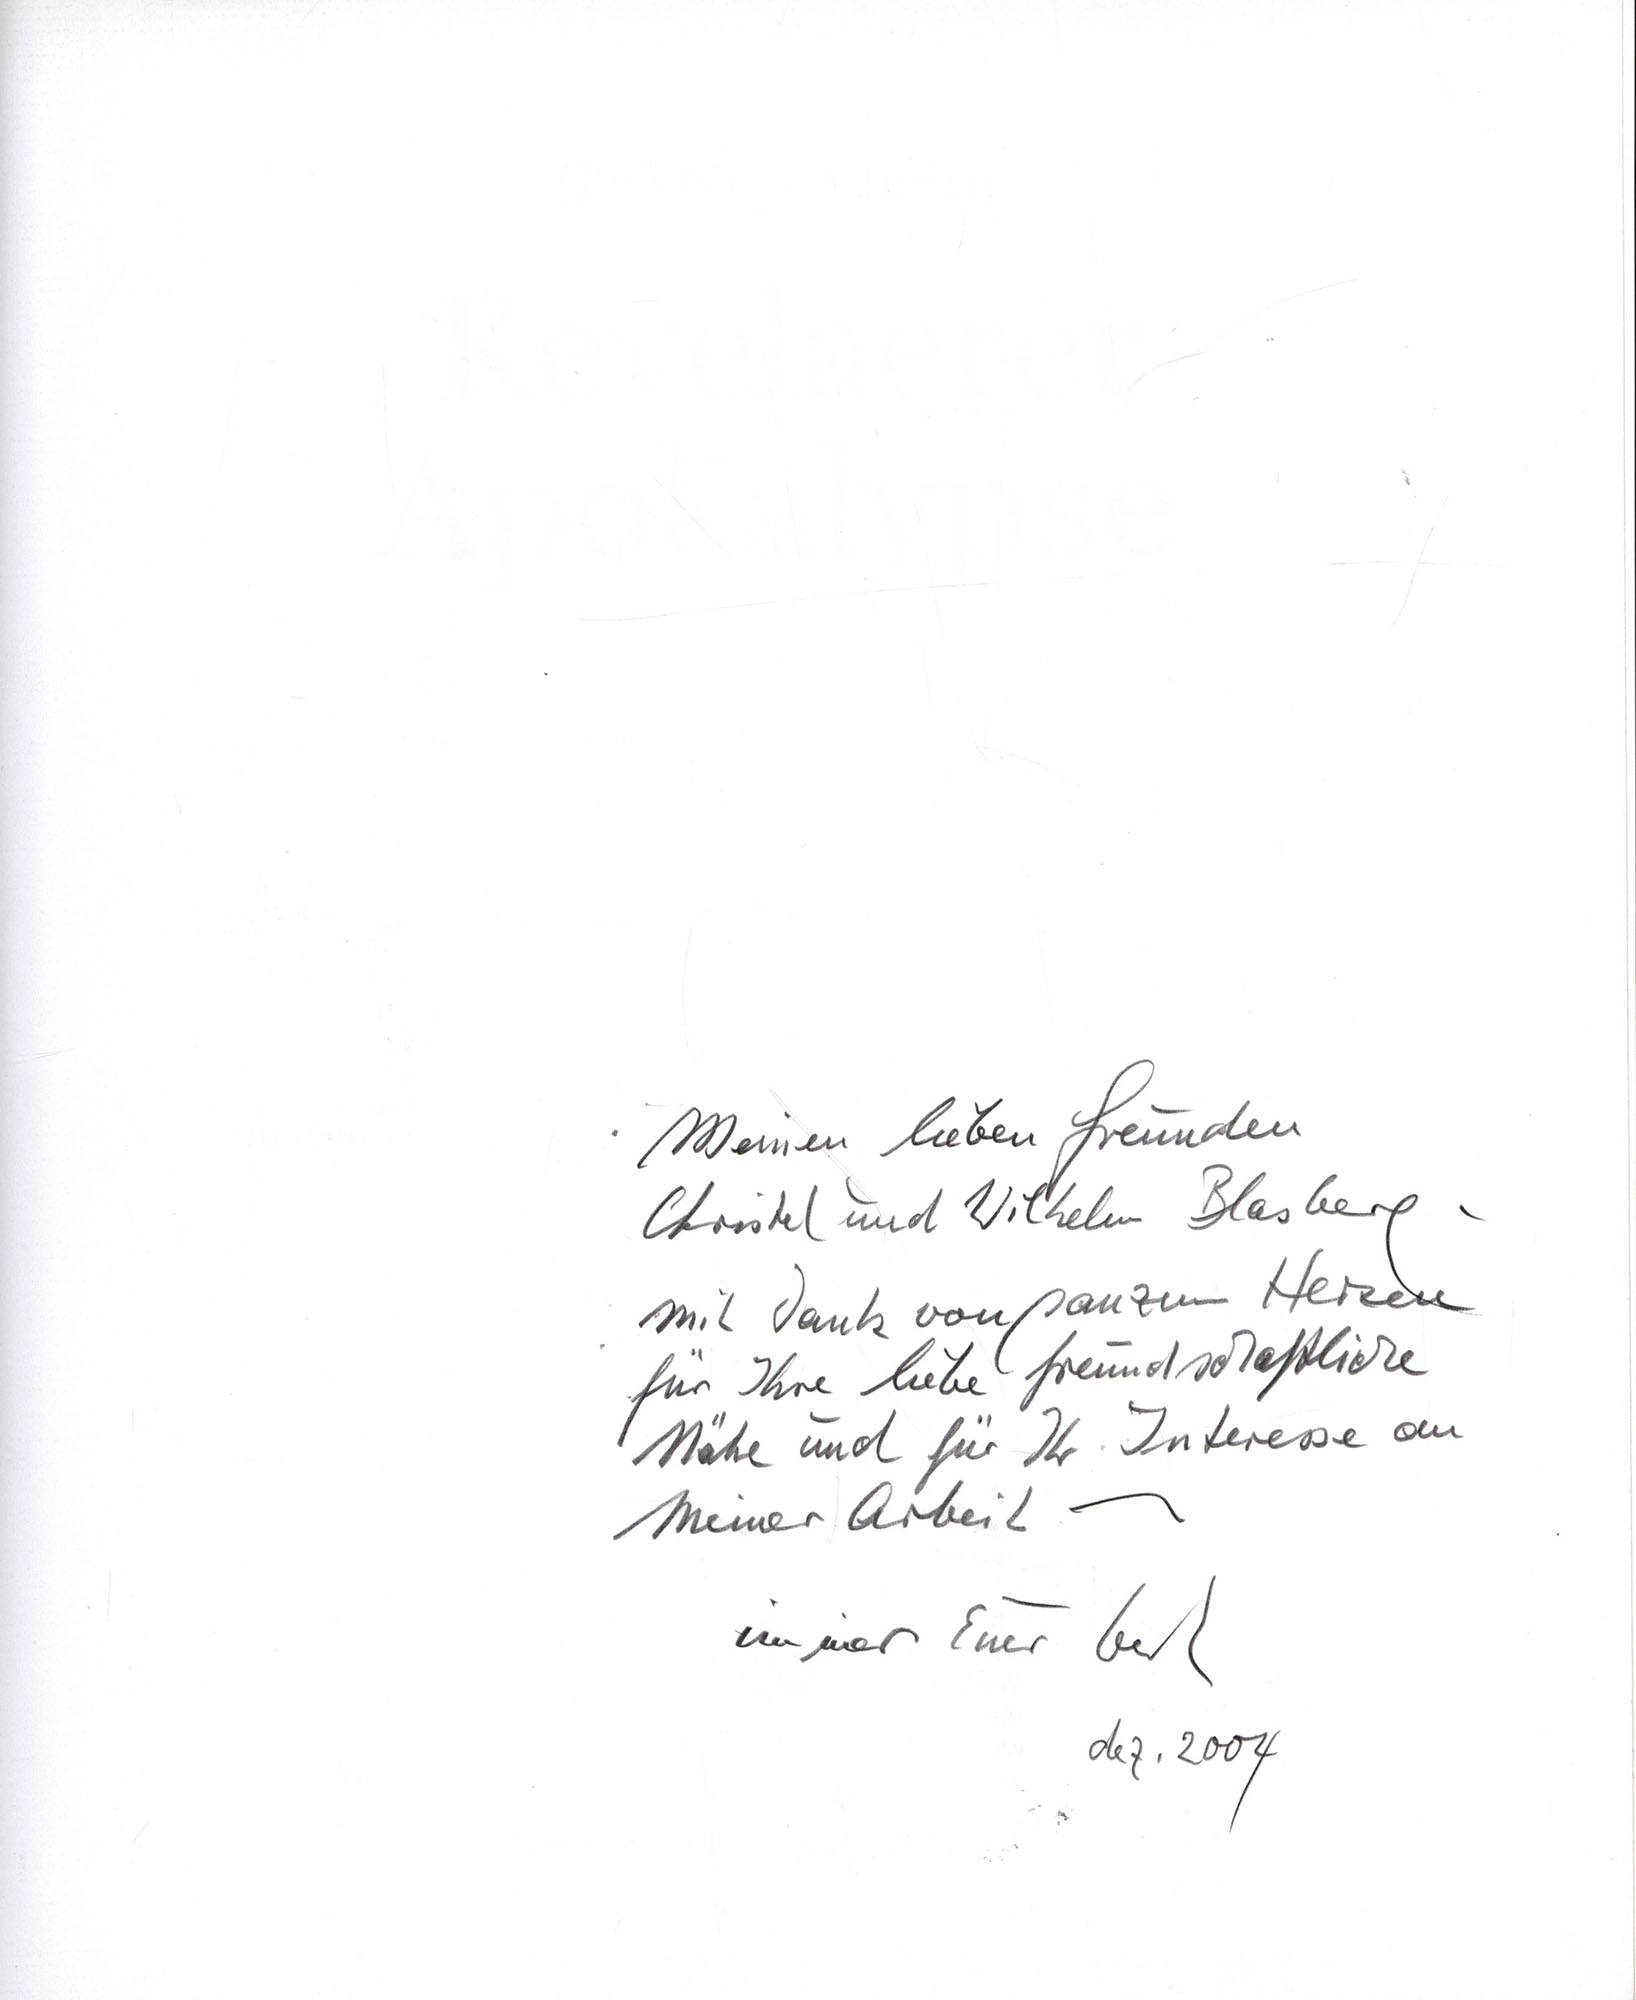 Kevelaerer
Apokalypse
Meinen lieben Freunden
Christel und Wilhelm Blasberg -
mit Dank von ganzem Herzen
für Ihre liebe freundschaftliche
Nähe und für Ihr Interesse an
meiner Arbeit
immer Euer
dez. 2004